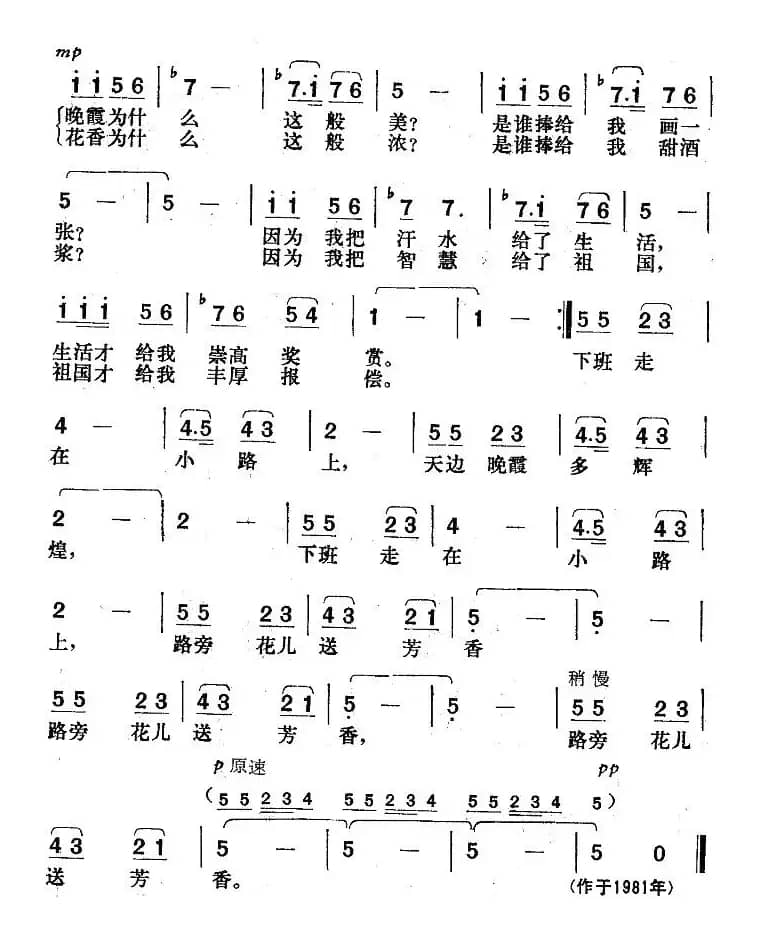 mp
i i 5 6 | ♭7 — | ♭7. i 7 6 | 5 — | i i 5 6 | ♭7. i 7 6 |
晚霞为什 么 这 般 美? 是谁捧给 我 画一
花香为什 么 这 般 浓? 是谁捧给 我 甜酒
5 — | 5 — | i i 5 6 | ♭7 7. | ♭7. i 7 6 | 5 — |
张? 因为 我把 汗 水 给了 生 活,
浆? 因为 我把 智 慧 给了 祖 国,
i i i 5 6 | ♭7 6 5 4 | 1 — | 1 — :‖ 5 5 2 3 |
生活才 给我 崇高 奖 赏。 下班 走
祖国才 给我 丰厚 报 偿。
4 — | 4. 5 4 3 | 2 — | 5 5 2 3 | 4. 5 4 3 |
在 小 路 上, 天边 晚霞 多 辉
2 — | 2 — | 5 5 2 3 | 4 — | 4. 5 4 3 |
煌, 下班 走 在 小 路
2 — | 5 5 2 3 | 4 3 2 1 | 5 — | 5 — |
上, 路旁 花儿 送 芳 香
稍慢
5 5 2 3 | 4 3 2 1 | 5 — | 5 — | 5 5 2 3 |
路旁 花儿 送 芳 香, 路旁 花儿
p 原速 pp
( 5 5 2 3 4 5 5 2 3 4 5 5 2 3 4 5 )
4 3 2 1 | 5 — | 5 — | 5 — | 5 0 ‖
送 芳 香。 (作于1981年)